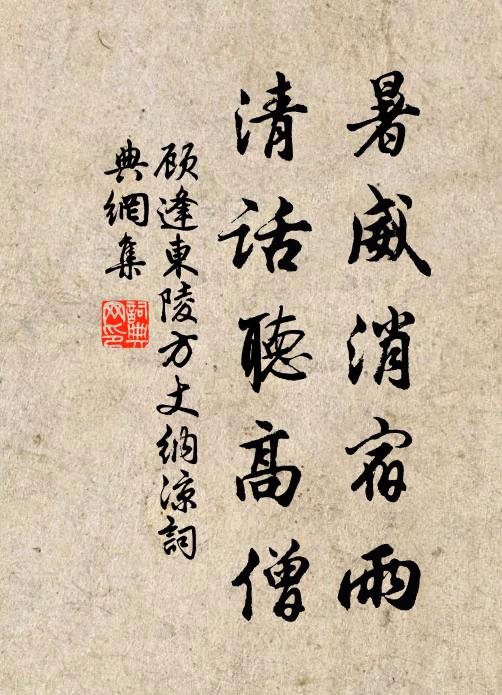 暑威消宿雨
清話聽高僧
顧逢東陵方丈納涼詞
典網集
詞典
网印